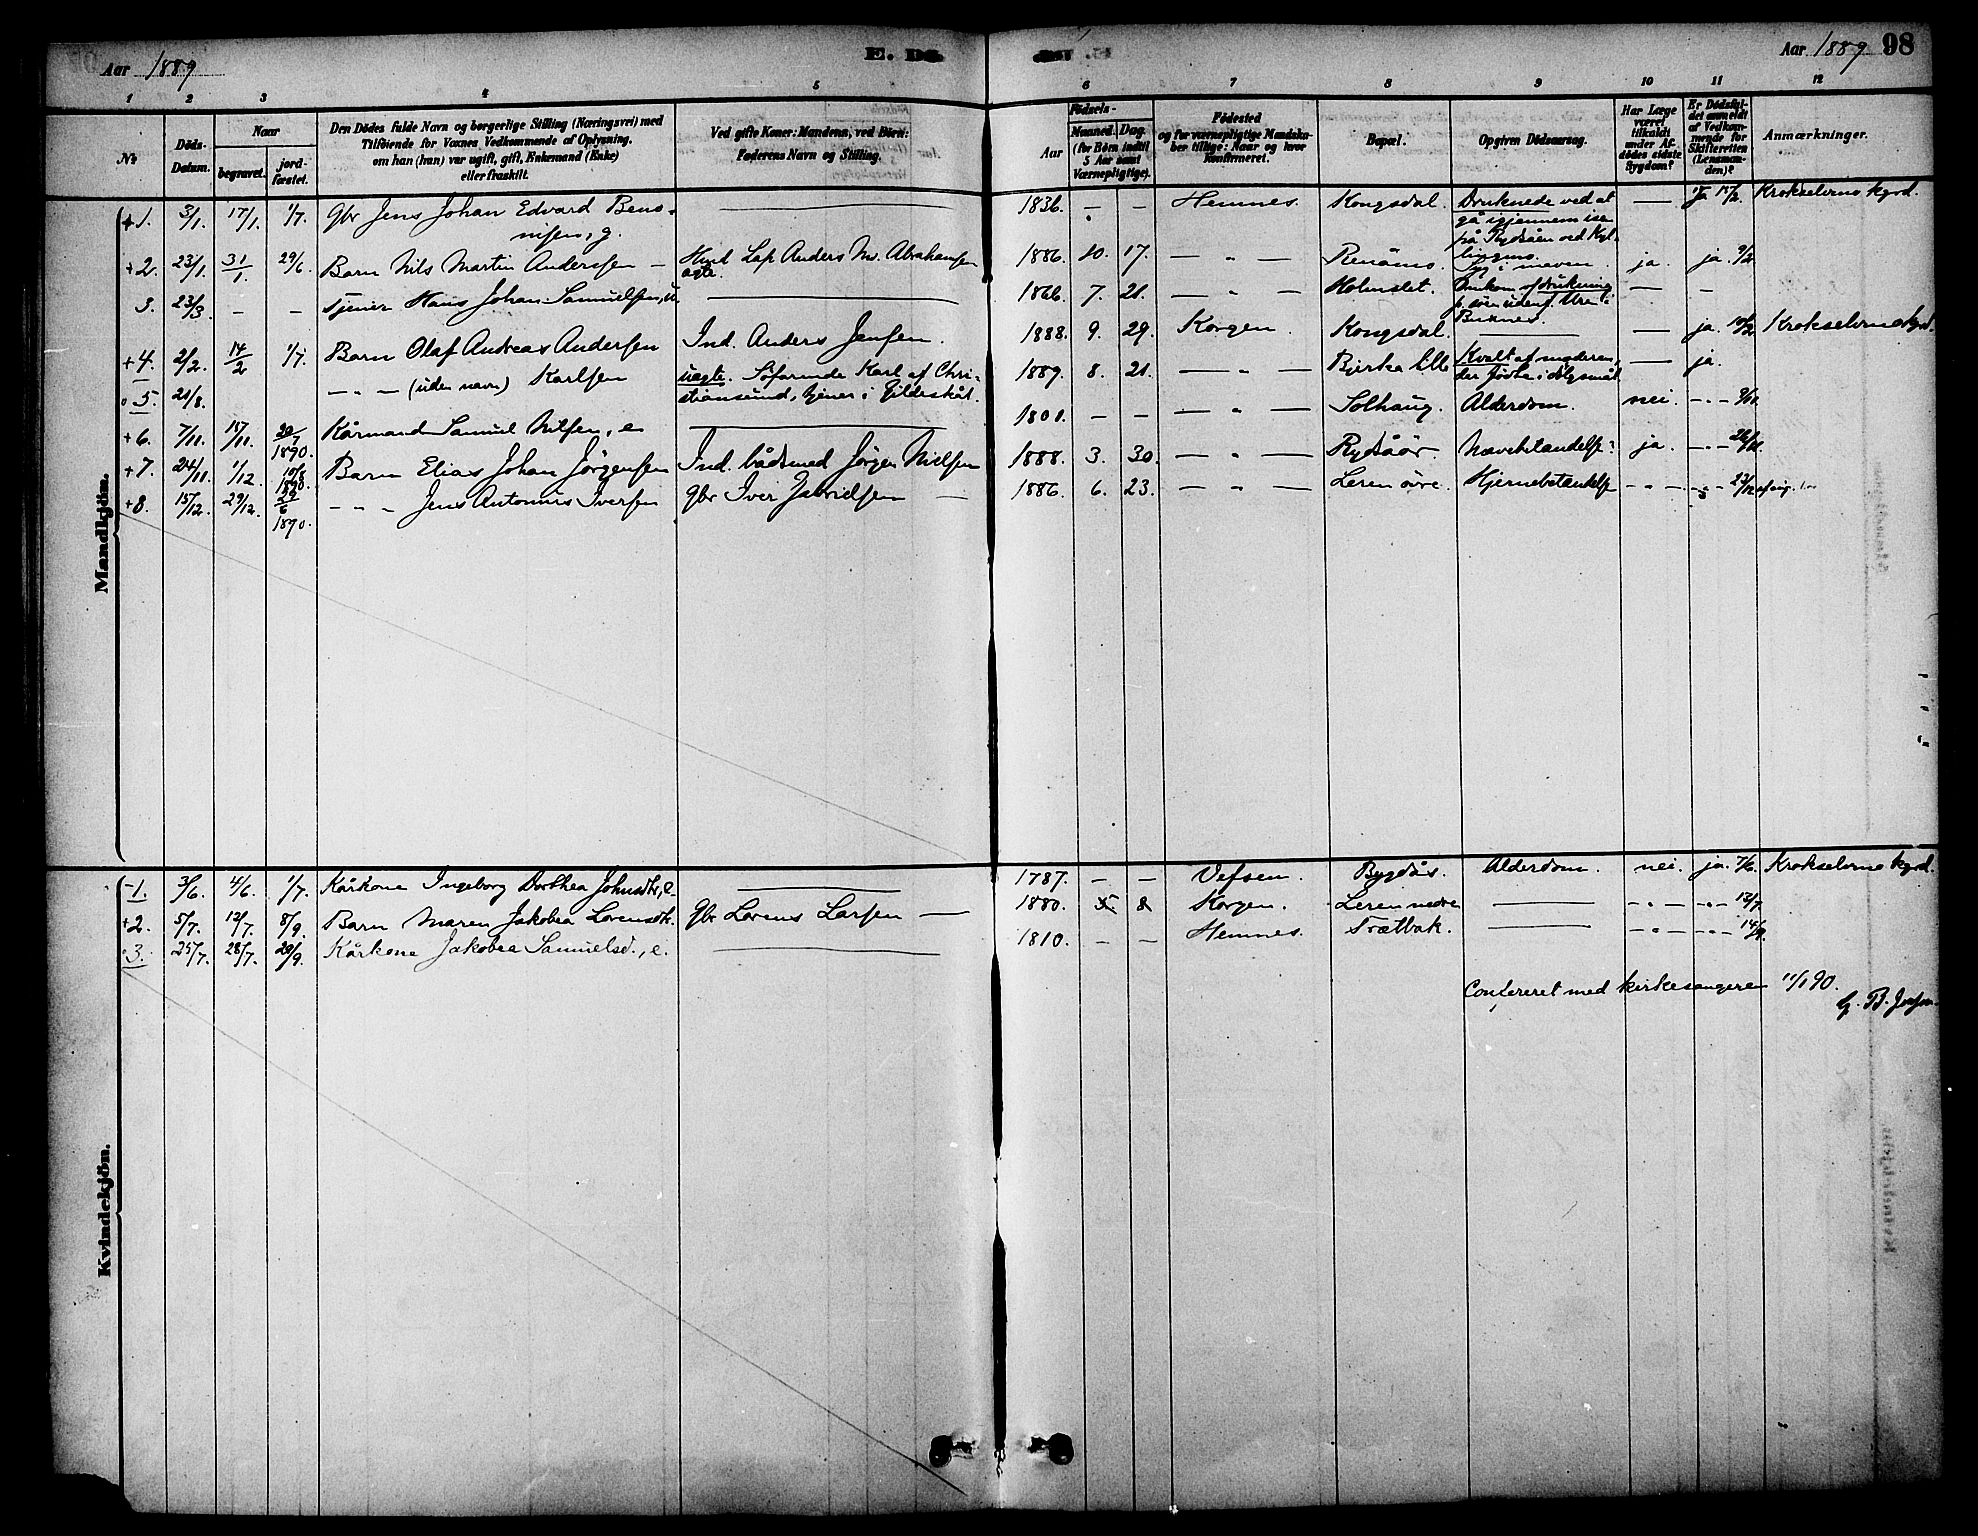 Aar 1889
E. Dö
Aar 1889 98
1 2 3 4 5 6 7 8 9 10 11 12
No
Döds-Datum.
Naar
begravet.
jord-fæstet.
Den Dödes fulde Navn og borgerlige Stilling (Næringsvei) med
Tilföiende for Voxnes Vedkommende af Oplysning,
om han (hun) var ugift, gift, Enkemand (Enke)
eller fraskilt.
Ved gifte Koner: Mandens, ved Börn:
Faderens Navn og Stilling.
Födsels-
Aar
Maaned. Dag.
(for Börn indtil
5 Aar samt
Værnepligtige).
Födested
og for værnepligtige Mandskaber tillige: Naar og hvor
konfirmeret.
Bopæl.
Opgiven Dödsaarsag.
Har Læge
været
tilkaldt
under Afdödes sidste
Sygdom?
Er Dödsfaldet anmeldt
af Vedkommende for
Skifteretten
(Lensmanden)?
Anmærkninger.
Mandkjön.
+1. 3/1. 17/1. 1/7. Gbr Jens Johan Edvard Benonisen, g. — 1836. — — Hemnes. Kongsdal. Druknede ved at gå igjennem isen på Rydsåen ved — ja 15/2. Krokselvmo kgrd.
+2. 23/1. 31/1. 29/6. Barn Nils Martin Andersen — Lap Anders M. Abrahamsen ægte. 1886. 10. 17. — " — Renåmo. Syg i maven ja. ja. 9/2
3. 23/3. — — Tjener Hans Johan Samuelsen, u. — 1866. 7. 21. — " — Holmslet. Omkom — —
+4. 2/2. 14/2 1/7. Barn Olaf Andreas Andersen Ind. Anders Jensen. 1888. 9. 29. Korgen. Kongsdal. — — ja. Krokselvmo kgrd.
5. 21/8. — " — (uden navn) Karlsen uægte. Söfarende Karl af Christianssund, tjener i Gildeskål. 1889. 8. 21. — " — Bjerka Kvalt af moderen, der födte i — ja.
+6. 7/11. 15/11. 20/7 1890. Kårmand Samuel Nilsen, e — 1801. — — — " — Solhaug. Alderdom. nei. — " —
+7. 24/11. 1/12. 10/8 1890. Barn Elias Johan Jörgensen Ind. bådsmed Jörgen Nielsen 1888. 3. 30. — " — Rydsåör. ja. — " —
+8. 15/12. 29/12. 22/6 1890. — " — Jens Antonius Iversen Gbr Iver Gabrielsen — 1886. 6. 23. — " — Leren övre. Hjernebetændelse — " — — " —
Kvindekjön.
1. 3/6. 4/6. 1/7. Kårkone Ingeborg Dorthea Johnsdtr, e. — 1787. — — Vefsen. Bygdås. Alderdom. nei. ja. 7/6. Krokselvmo kgrd.
+2. 5/7. 12/7. 8/9. Barn Maren Jakobea Lorensdtr. Gbr Lorens Larsen — 1880. 5 8 Korgen. Leren nedre — — " — — " — 13/7.
3. 25/7. 28/7. 29/9. Kårkone Jakobea Samuelsd., e. — 1810. — — Hemnes. Trætbak. — — " — — " — 14/9.
Confereret med kirkesangeren 11/1 90.
G. B.